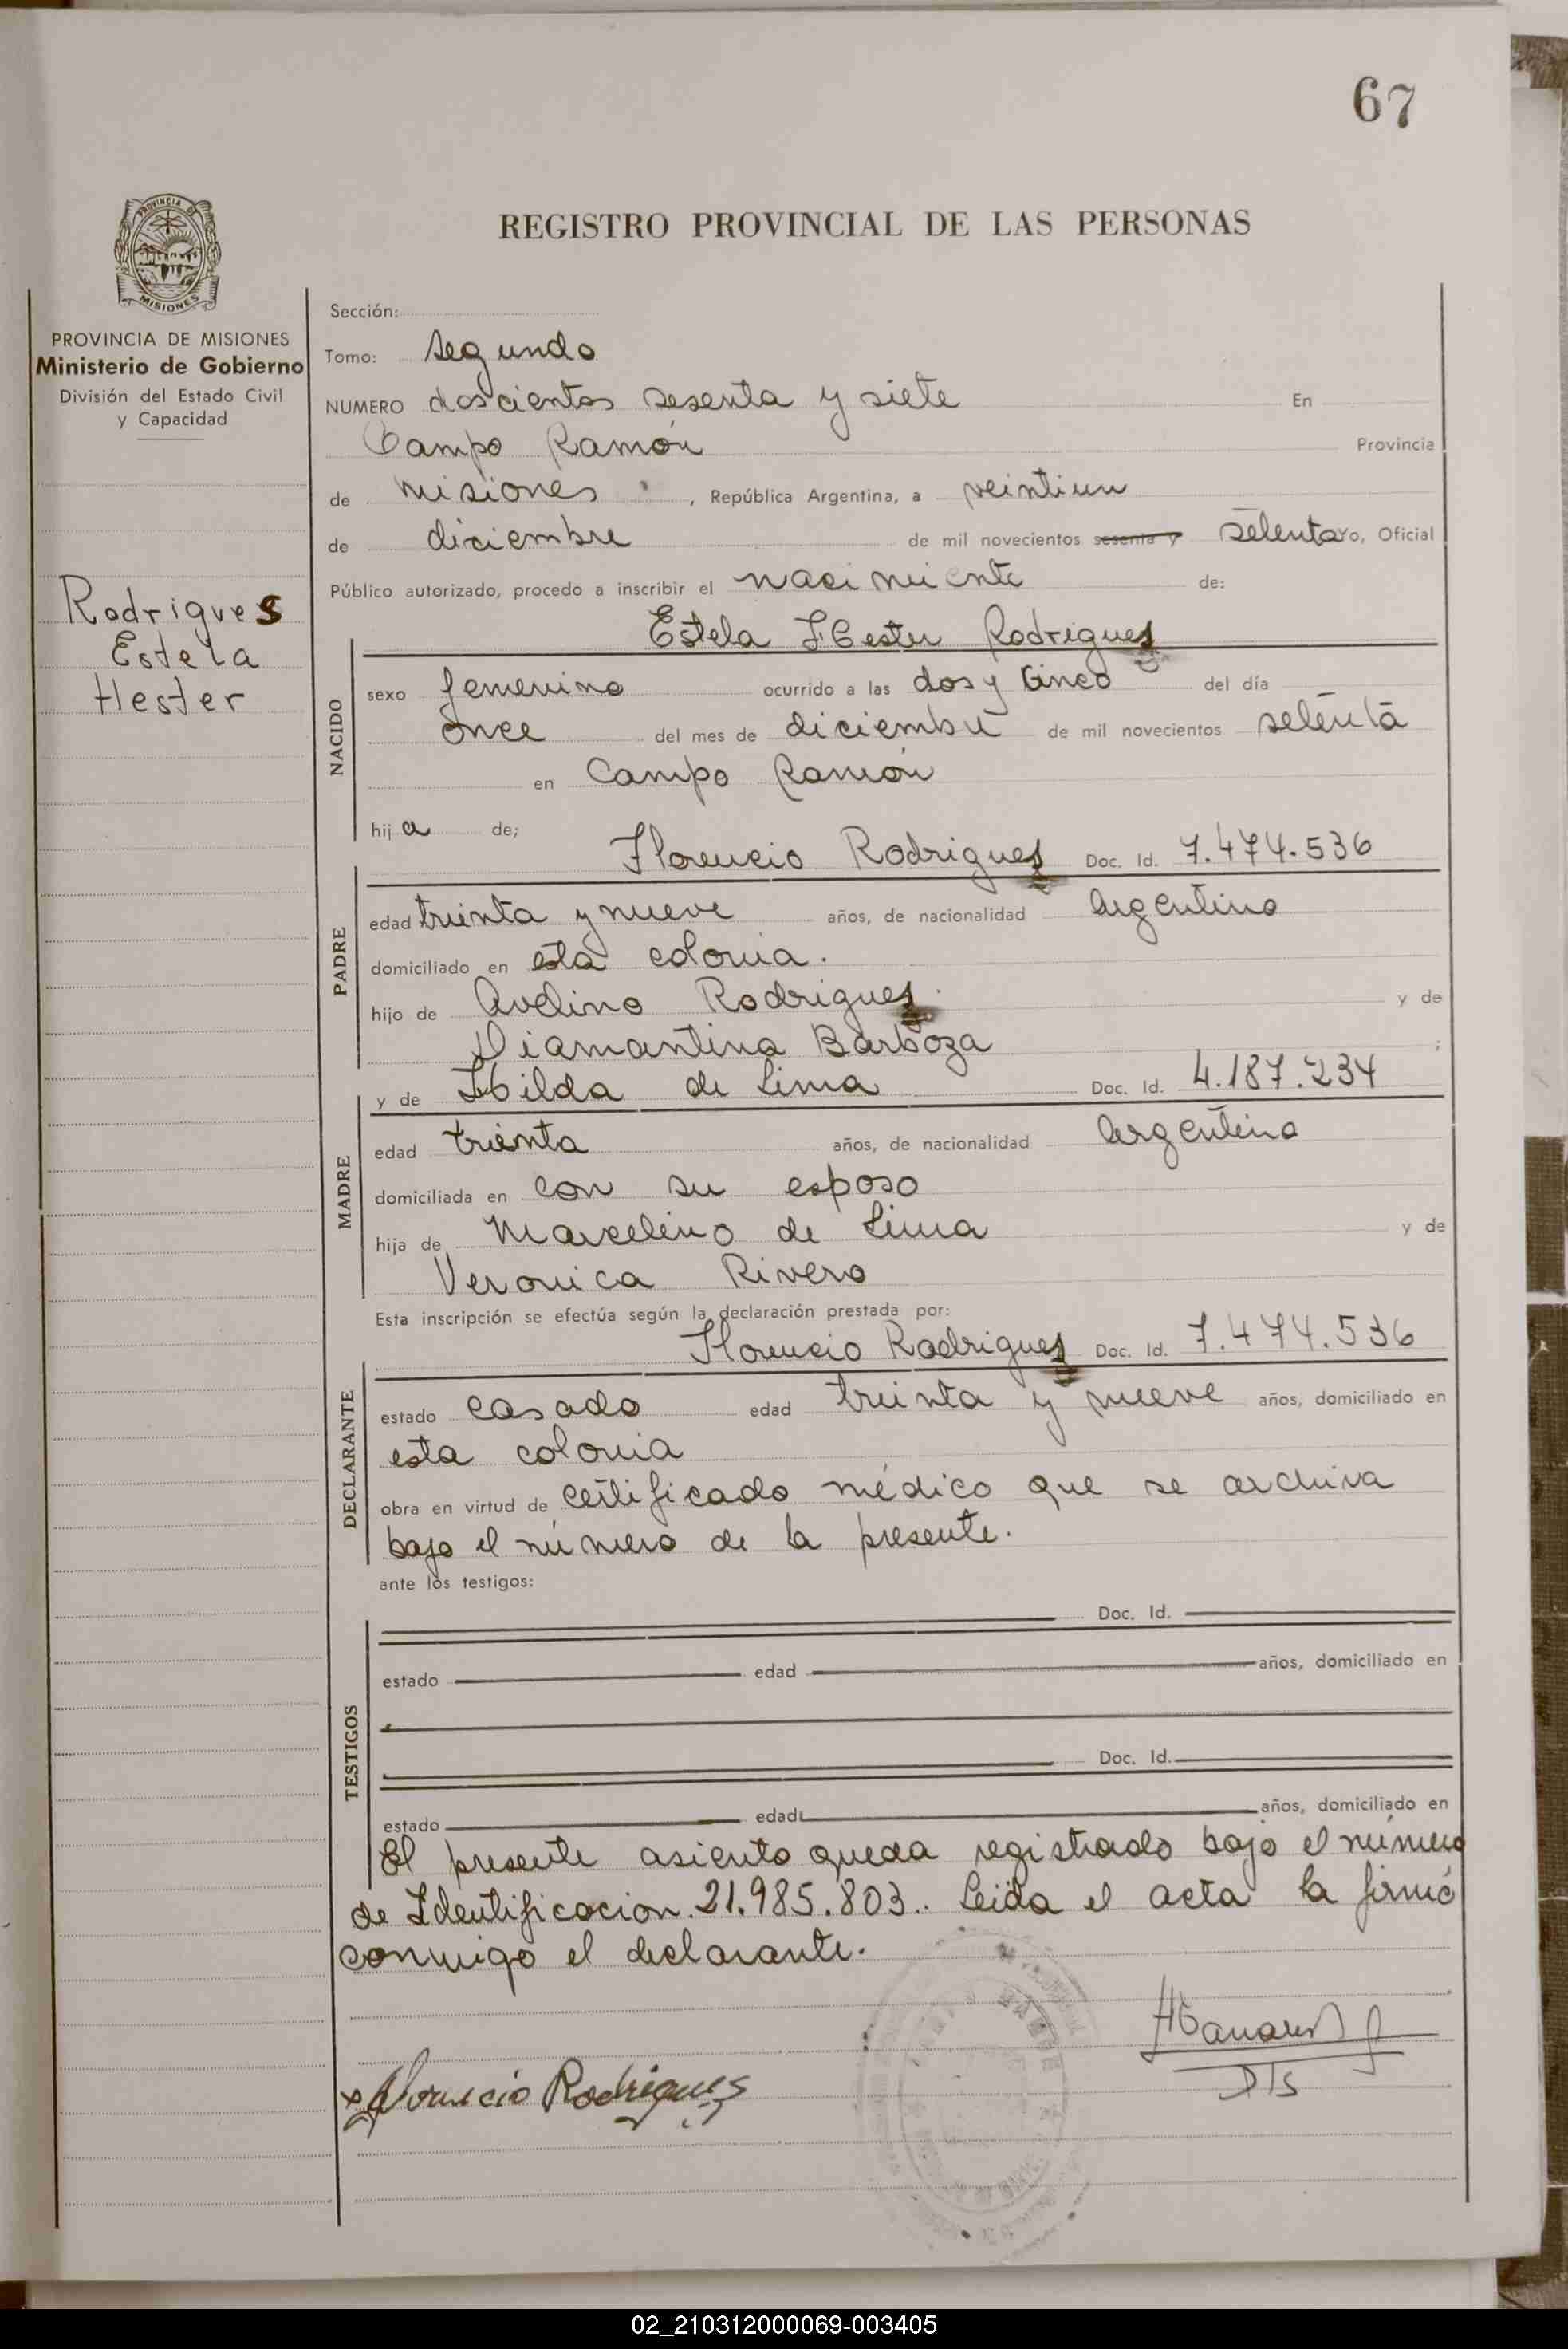 67
REGISTRO PROVINCIAL DE LAS PERSONAS
PROVINCIA DE MISIONES
Ministerio de Gobierno
División del Estado Civil
y Capacidad
Rodrigues
Estela
Hester
Sección:
Tomo: segundo
NUMERO doscientos sesenta y siete En
Campo Ramón Provincia
de Misiones, República Argentina, a veintiun
de diciembre de mil novecientos sesenta y setenta yo, Oficial
Público autorizado, procedo a inscribir el nacimiento de:
Estela Hester Rodrigues
NACIDO
sexo femenino ocurrido a las dos y cinco del día
once del mes de diciembre de mil novecientos setenta
en Campo Ramón
hija de;
Florencio Rodrigues Doc. Id. 7.474.536
PADRE
edad treinta y nueve años, de nacionalidad argentino
domiciliado en esta colonia.
hijo de Avelino Rodrigues y de
Diamantina Barboza ;
y de Hilda de Lima Doc. Id. 4.187.234
MADRE
edad treinta años, de nacionalidad argentina
domiciliada en con su esposo
hija de Marcelino de Lima y de
Veronica Rivero
Esta inscripción se efectúa según la declaración prestada por:
Florencio Rodrigues Doc. Id. 7.474.536
DECLARANTE
estado casado edad treinta y nueve años, domiciliado en
esta colonia
obra en virtud de certificado médico que se archiva
bajo el número de la presente.
ante los testigos:
TESTIGOS
Doc. Id.
estado edad años, domiciliado en
Doc. Id.
estado edad años, domiciliado en
El presente asiento queda registrado bajo el número
de Identificacion 21.985.803. Leída el acta la firmó
conmigo el declarante.
Florencio Rodrigues
02_210312000069-003405